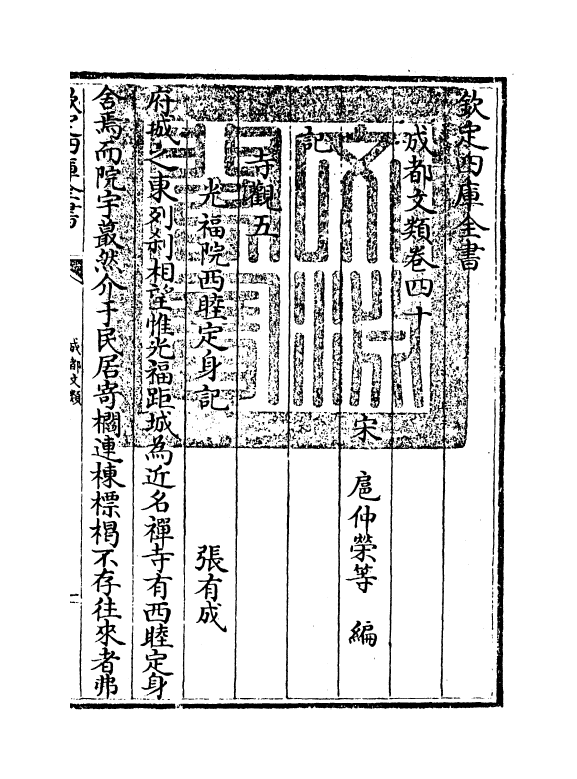 欽定四庫全書
成都文類卷四十
宋 扈仲榮等 編
記
寺觀五
光福院西睦定身記 張有成
府城之東列刹相望惟光福距城為近名禪寺有西睦定身
舍焉而院宇蕞然介于民居寄櫩連棟標榻不存往來者弗
欽定四庫全書
成都文類
一